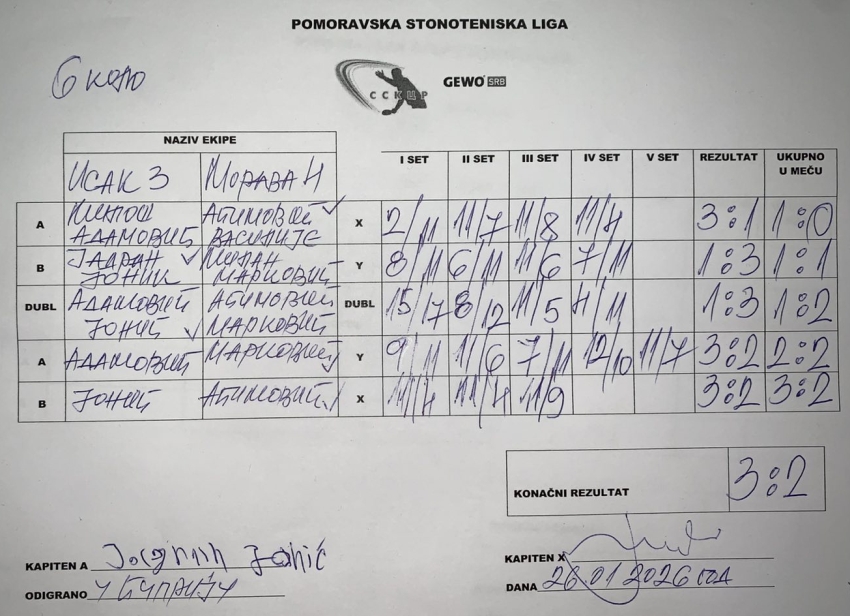 POMORAVSKA STONOTENISKA LIGA
6 коло
ССКЦР
GEWO SRB
NAZIV EKIPE
I SET II SET III SET IV SET V SET REZULTAT UKUPNO U MEČU
ИСАК 3 МОРАВА 4
A МИЛОШ АДАМОВИЋ АЋИМОВИЋ ВАСИЛИЈЕ X 2/11 11/7 11/8 11/8 3:1 1:0
B ЈАДРАН ЈОНИЋ МИЛАН МАРКОВИЋ Y 8/11 6/11 11/6 7/11 1:3 1:1
DUBL АДАМОВИЋ ЈОНИЋ АЋИМОВИЋ МАРКОВИЋ DUBL 15/17 8/12 11/5 4/11 1:3 1:2
A АДАМОВИЋ МАРКОВИЋ Y 9/11 11/6 7/11 12/10 11/7 3:2 2:2
B ЈОНИЋ АЋИМОВИЋ X 11/4 11/4 11/9 3:2 3:2
KONAČNI REZULTAT 3:2
KAPITEN A
KAPITEN X
ODIGRANO У ЋУПРИЈУ
DANA 26.01 2026 год